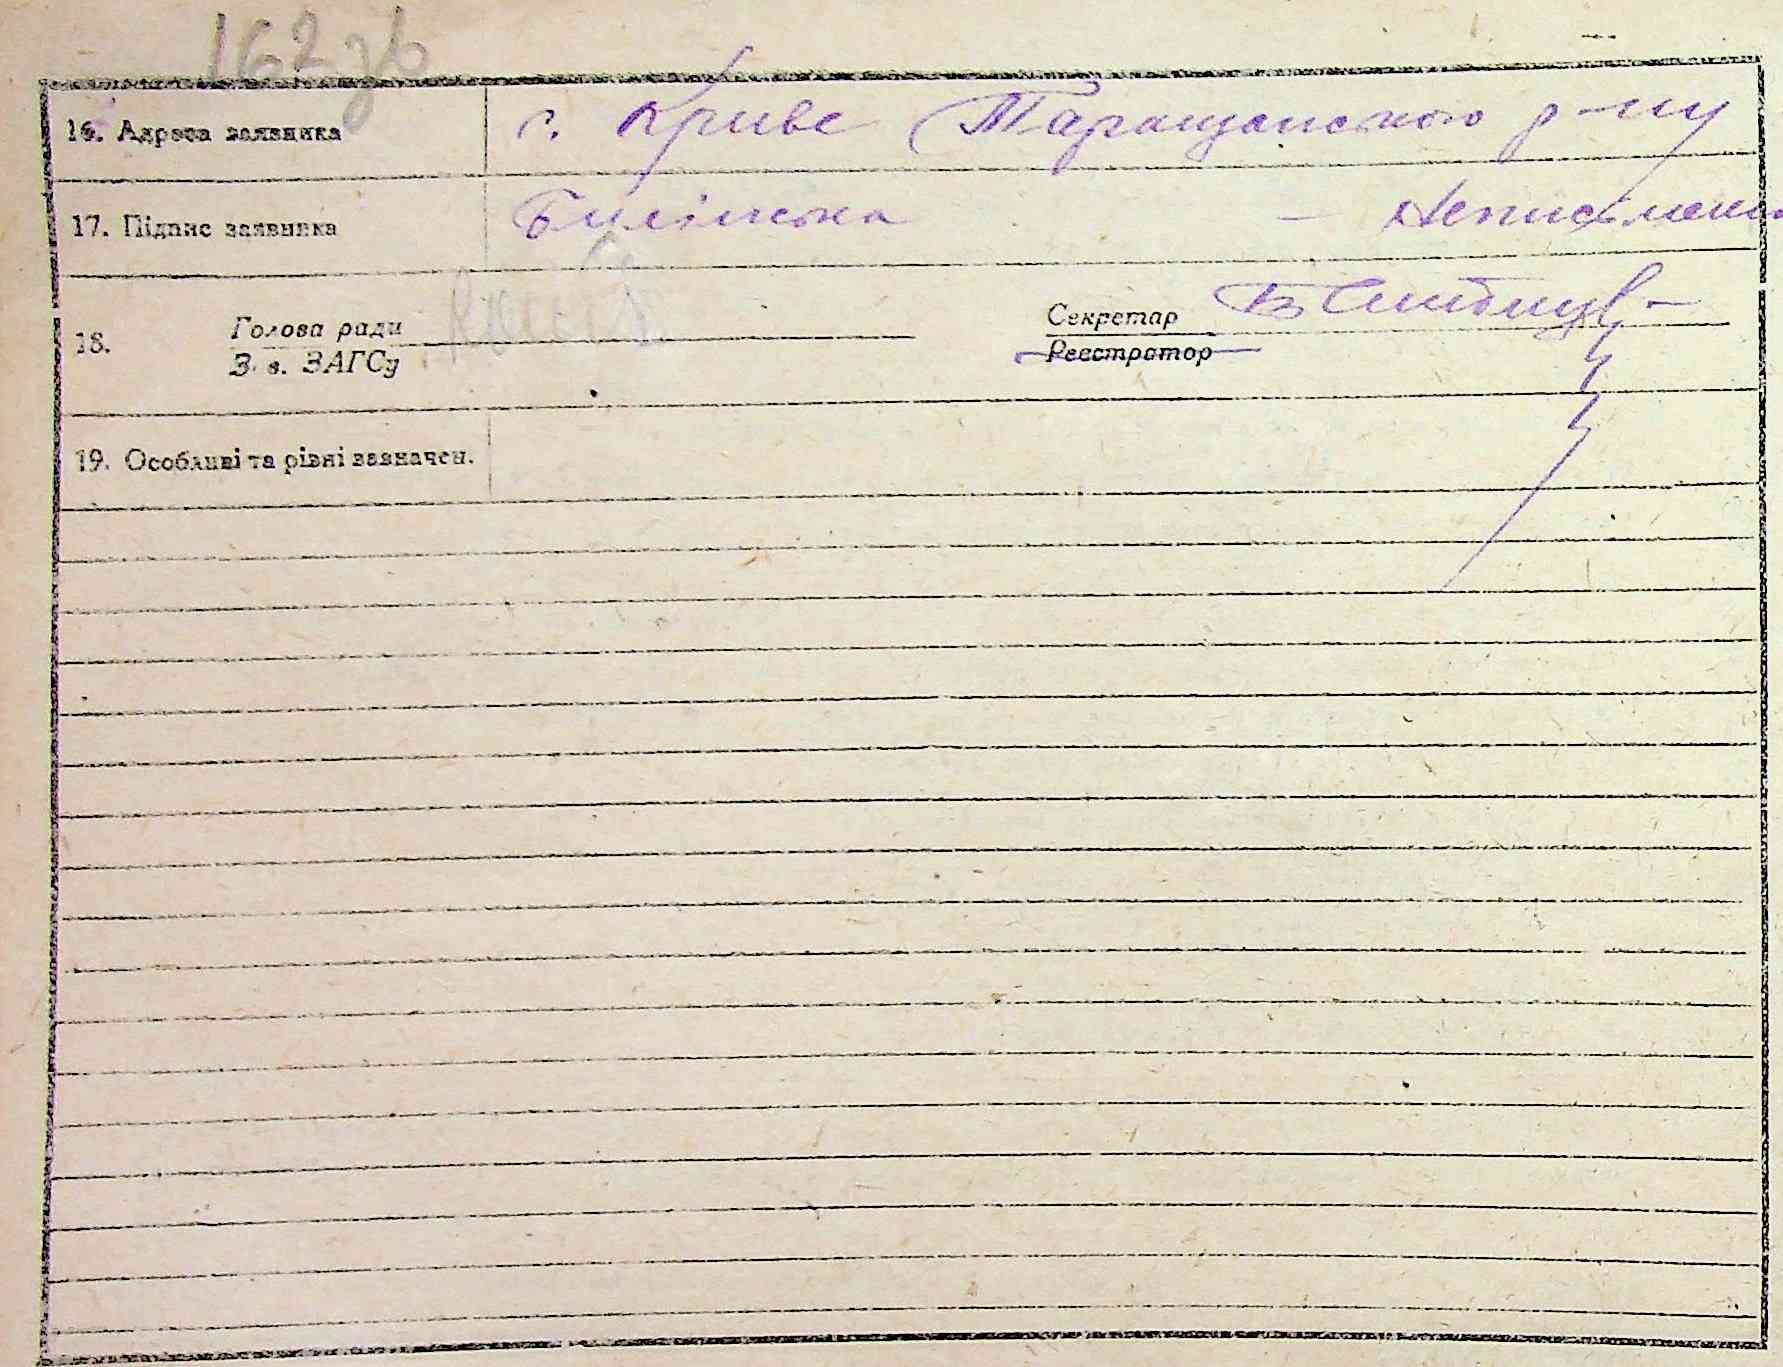 162 зв
16. Адреса заявника с. Криве Таращанського р-ну
17. Підпис заявника Билінська – неписьмен
Голова ради Секретар
18.
Зав. ЗАГСу Реєстратор
19. Особливі та різні зазначен.